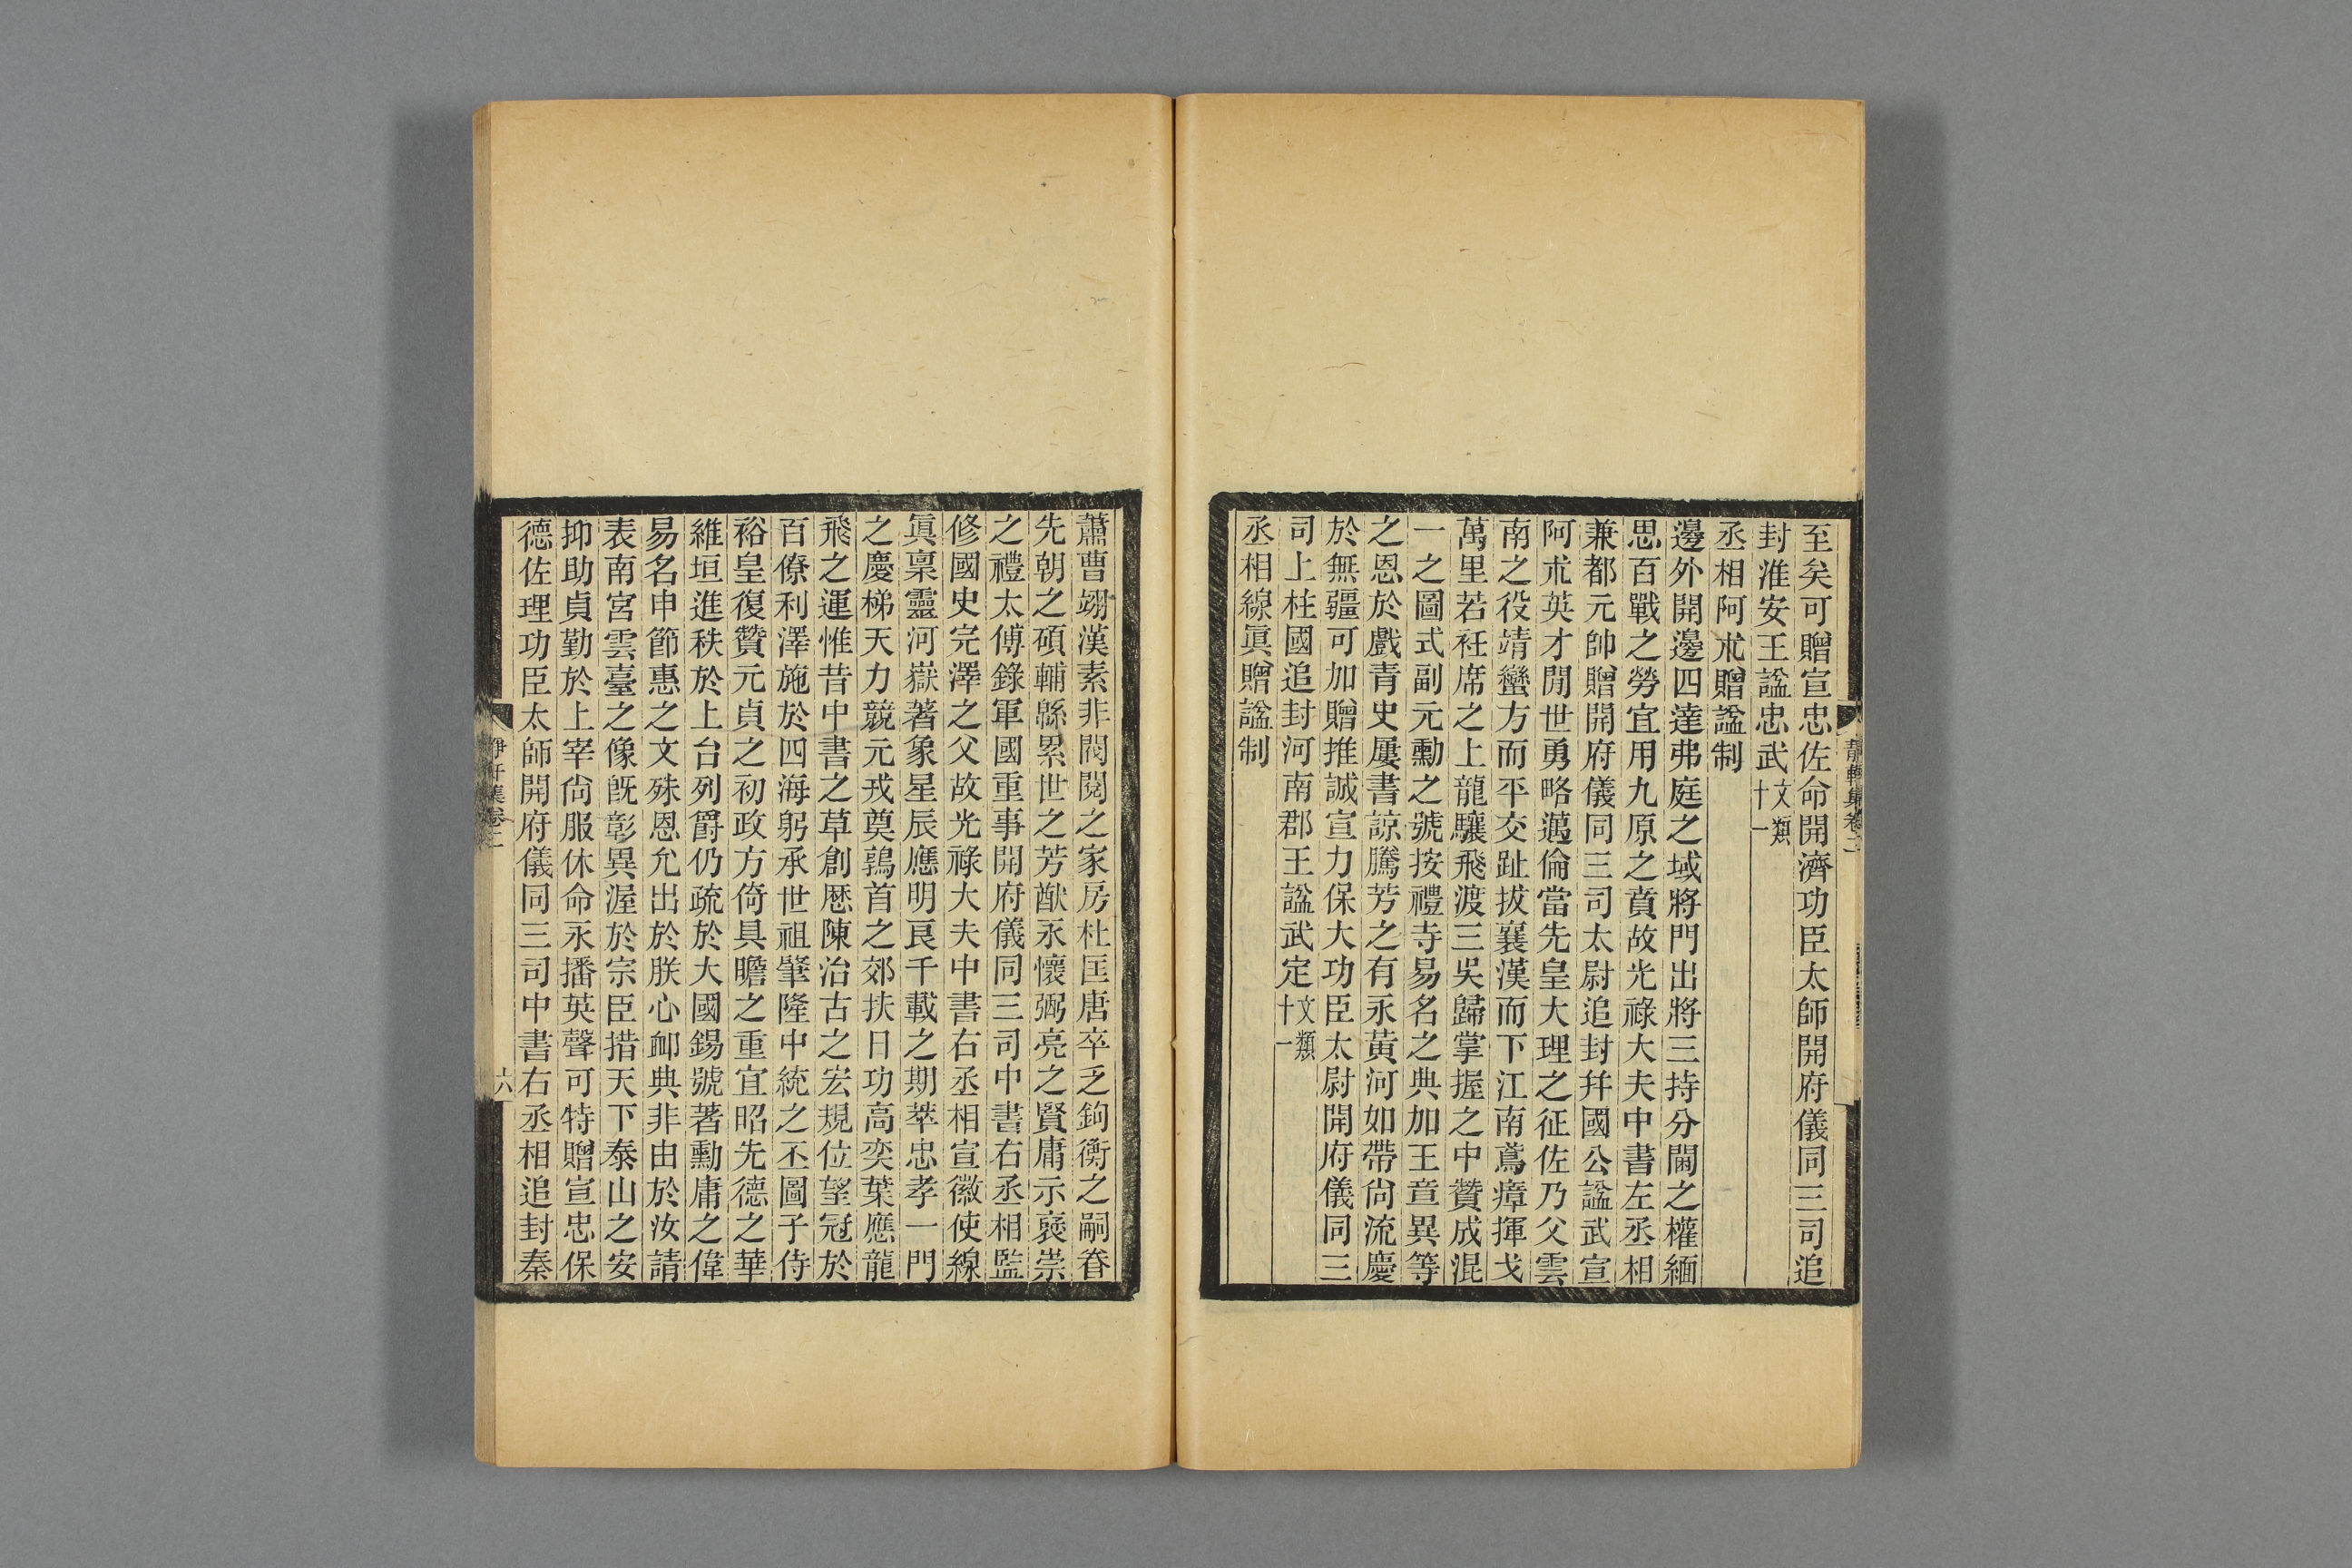 至矣可贈宣忠佐命開濟功臣太師開府儀同三司追
封淮安王諡忠武文類十一
丞相阿朮贈諡制
邊外開邊四達弗庭之域將門出將三持分閫之權緬
思百戰之勞宜用九原之賁故光祿大夫中書左丞相
兼都元帥贈開府儀同三司太尉追封幷國公諡武宣
阿朮英才閒世勇略邁倫當先皇大理之征佐乃父雲
南之役靖蠻方而平交趾拔襄漢而下江南鳶瘴揮戈
萬里若衽席之上龍驤飛渡三吳歸掌握之中贊成混
一之圖式副元勳之號按禮寺易名之典加王章異等
之恩於戲青史屢書諒騰芳之有永黃河如帶尙流慶
於無疆可加贈推誠宣力保大功臣太尉開府儀同三
司上柱國追封河南郡王諡武定文類十一
丞相線眞贈諡制
蕭曹翊漢素非閥閱之家房杜匡唐卒乏鈞衡之嗣眷
先朝之碩輔緜累世之芳猷永懷弼亮之賢庸示褒崇
之禮太傅錄軍國重事開府儀同三司中書右丞相監
修國史完澤之父故光祿大夫中書右丞相宣徽使線
眞稟靈河嶽著象星辰應明良千載之期萃忠孝一門
之慶梯天力競元戎奠鶉首之郊扶日功高奕葉應龍
飛之運惟昔中書之草創歷陳治古之宏規位望冠於
百僚利澤施於四海躬承世祖肇隆中統之丕圖子侍
裕皇復贊元貞之初政方倚具瞻之重宜昭先德之華
維垣進秩於上台列爵仍疏於大國錫號著勳庸之偉
易名申節惠之文殊恩允出於朕心卹典非由於汝請
表南宮雲臺之像旣彰異渥於宗臣措天下泰山之安
抑助貞勤於上宰尙服休命永播英聲可特贈宣忠保
德佐理功臣太師開府儀同三司中書右丞相追封秦
靜軒集卷二
六